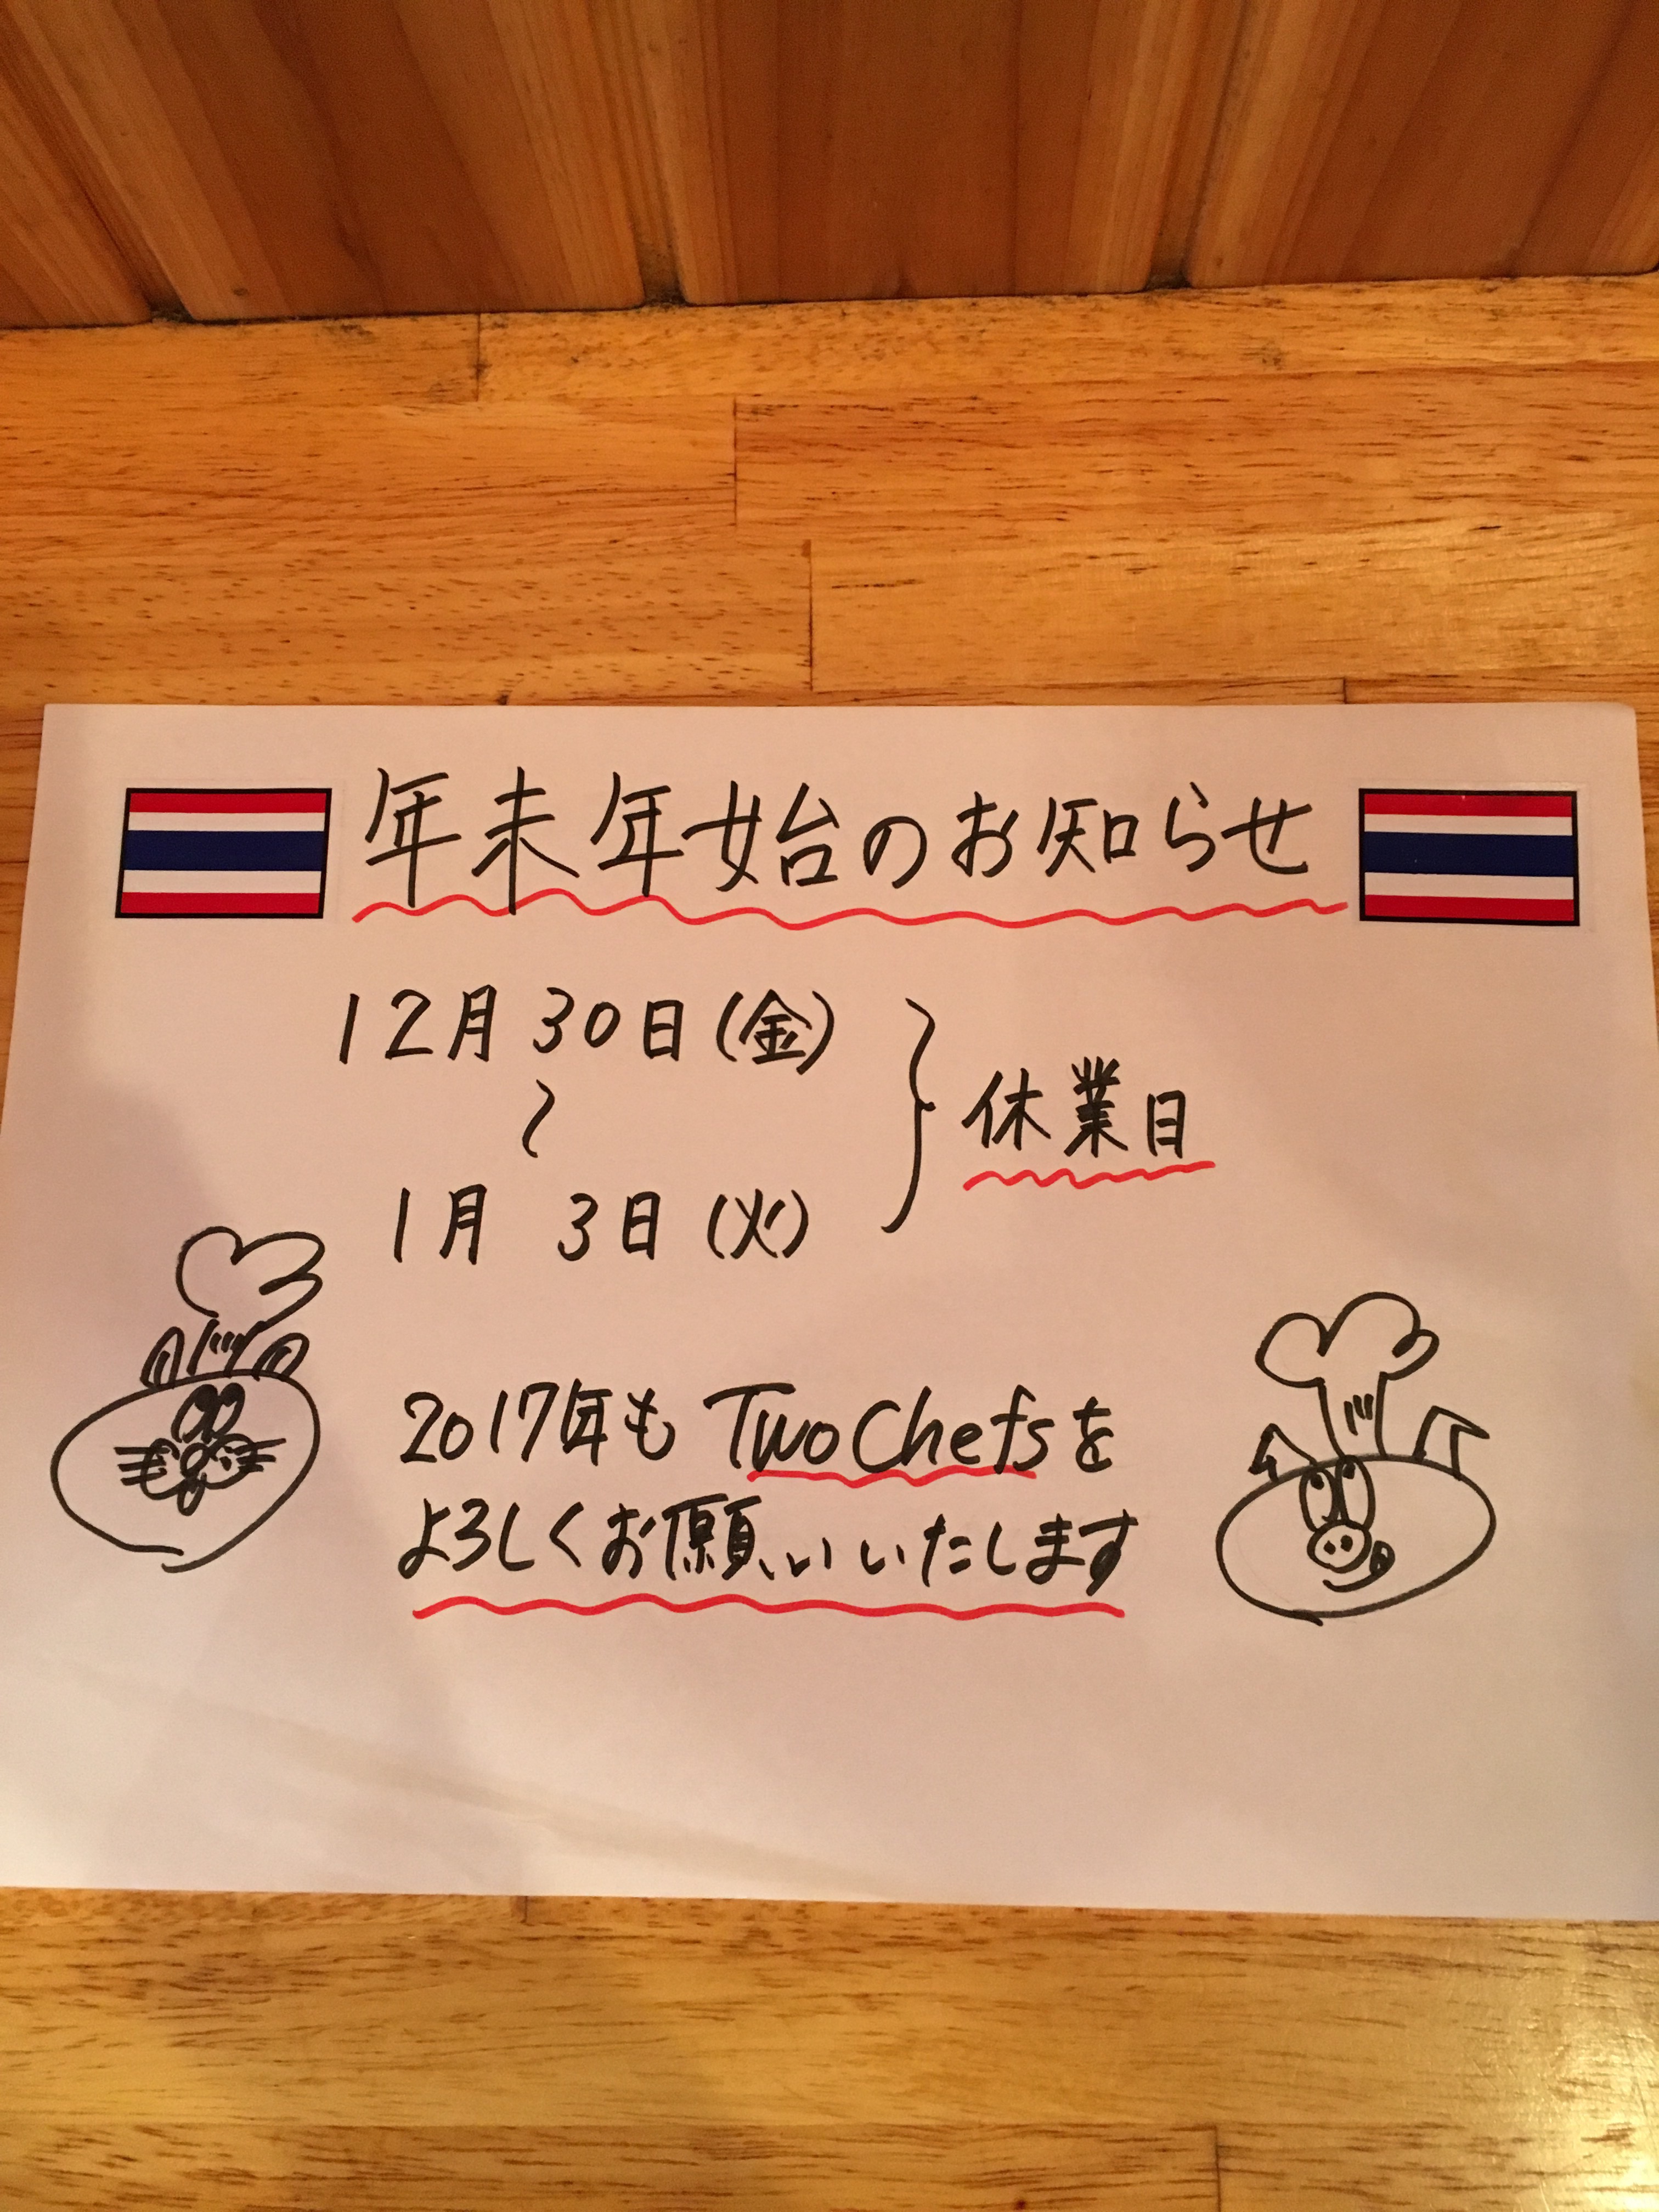 年末年始のお知らせ
12月30日(金)
〜
1月 3日(火)
休業日
2017年も Two Chefsを
よろしくお願いいたします